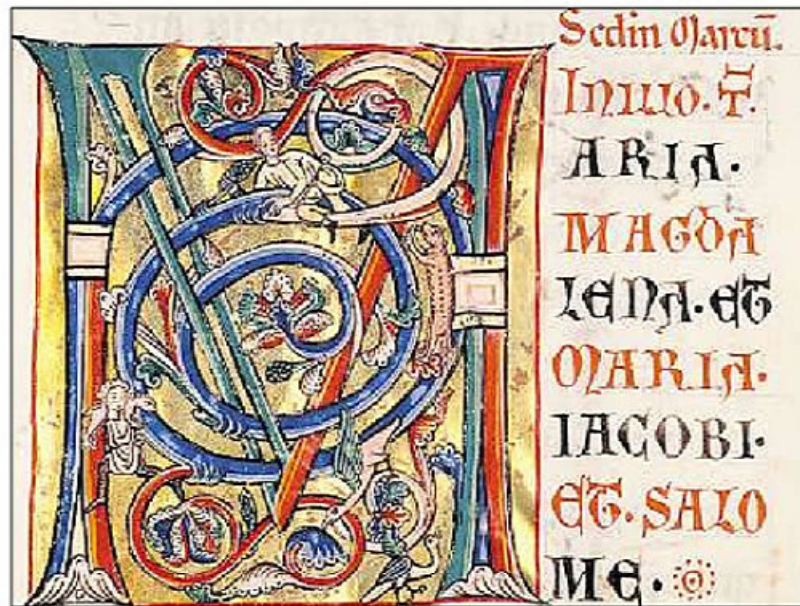 Scdin Marcū.
In illo. T.
M
ARIA.
MAGDA
LENA. ET
MARIA.
IACOBI.
ET. SALO
ME.